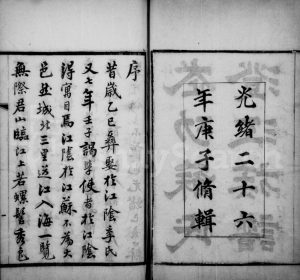 光緒二十六
年庚子脩輯
序
昔歲乙巳彝娶於江陰李氏
又七年壬子謁學使者於江陰
得寓目焉江陰於江蘇不為大
邑然城北三里送江入海一覽
無際君山臨江上若螺髻秀色